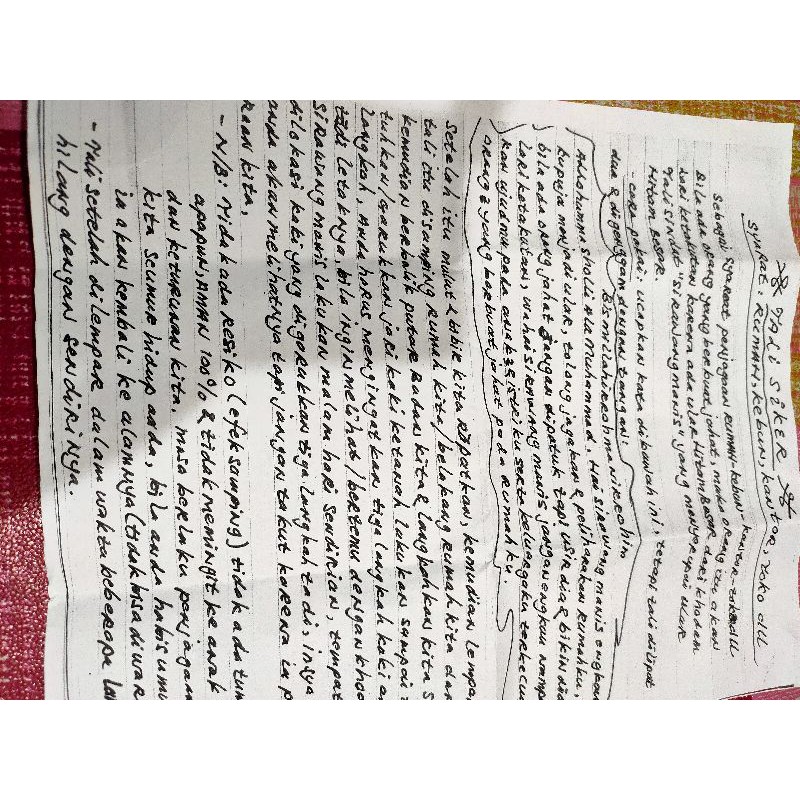 TALI SIKER
Syarat: RUMAH, kebun, kantor, toko dll
Sebagai syareat penjagaan RUMAH - kebun kantor-toko dll
Bila ada orang yang berbuat jahat, maka orang itu akan
lari ketakutan karena ada ular Hitam Besar dari khodam
tali siker "sirawang manis" yang menyerupai ular
Hitam Besar.
- cara pakai: ucapkan kata dibawah ini, tetapi tali dilipat
dua & digenggam dengan tangan:
Bismilahirohmanirohim
Allohumma sholli Ala Muhammad, Hai sirawang manis engkau
kupuja menjadi ular, tolong jagakan & peliharakan Rumahku,
bila ada orang jahat jangan dipatuk tapi usir dia & bikin dia
lari ketakutan, wahai sirawang manis jangan engkau nampa
kan wujudmu pada anak & istriku serta keluargaku terkecu
orang 2 yang berbuat jahat pada rumahku.
Setelah itu mulut & bibir kita rapatkan, kemudian lempa
tali itu disamping rumah kita/belakang rumah kita dan
kemudian berbalik putar Badan kita & langkahkan kita s
tuhkan/garukkan jari kaki ketanah lakukan sampai
langkah, Anda harus mengingatkan tiga langkah kaki an
tadi letaknya, bila ingin melihat/bertemu dengan khod
sirawang manis lakukan malam hari sendirian, tempat
dilokasi kaki yang digarukkan tiga langkah tadi, insya
anda akan melihatnya tapi jangan takut karena ia p
raan kita.
- N/B: tidak ada resiko (efek samping) tidak ada tum
apapun, AMAN 100% & tidak memingit ke anak
dan keturunan kita. masa berlaku penjagaan
kita seumur hidup anda, bila anda habis umu
ia akan kembali ke alamnya (tidak bisa di war
- Tali setelah dilempar dalam waktu beberapa lam
hilang dengan sendirinya.